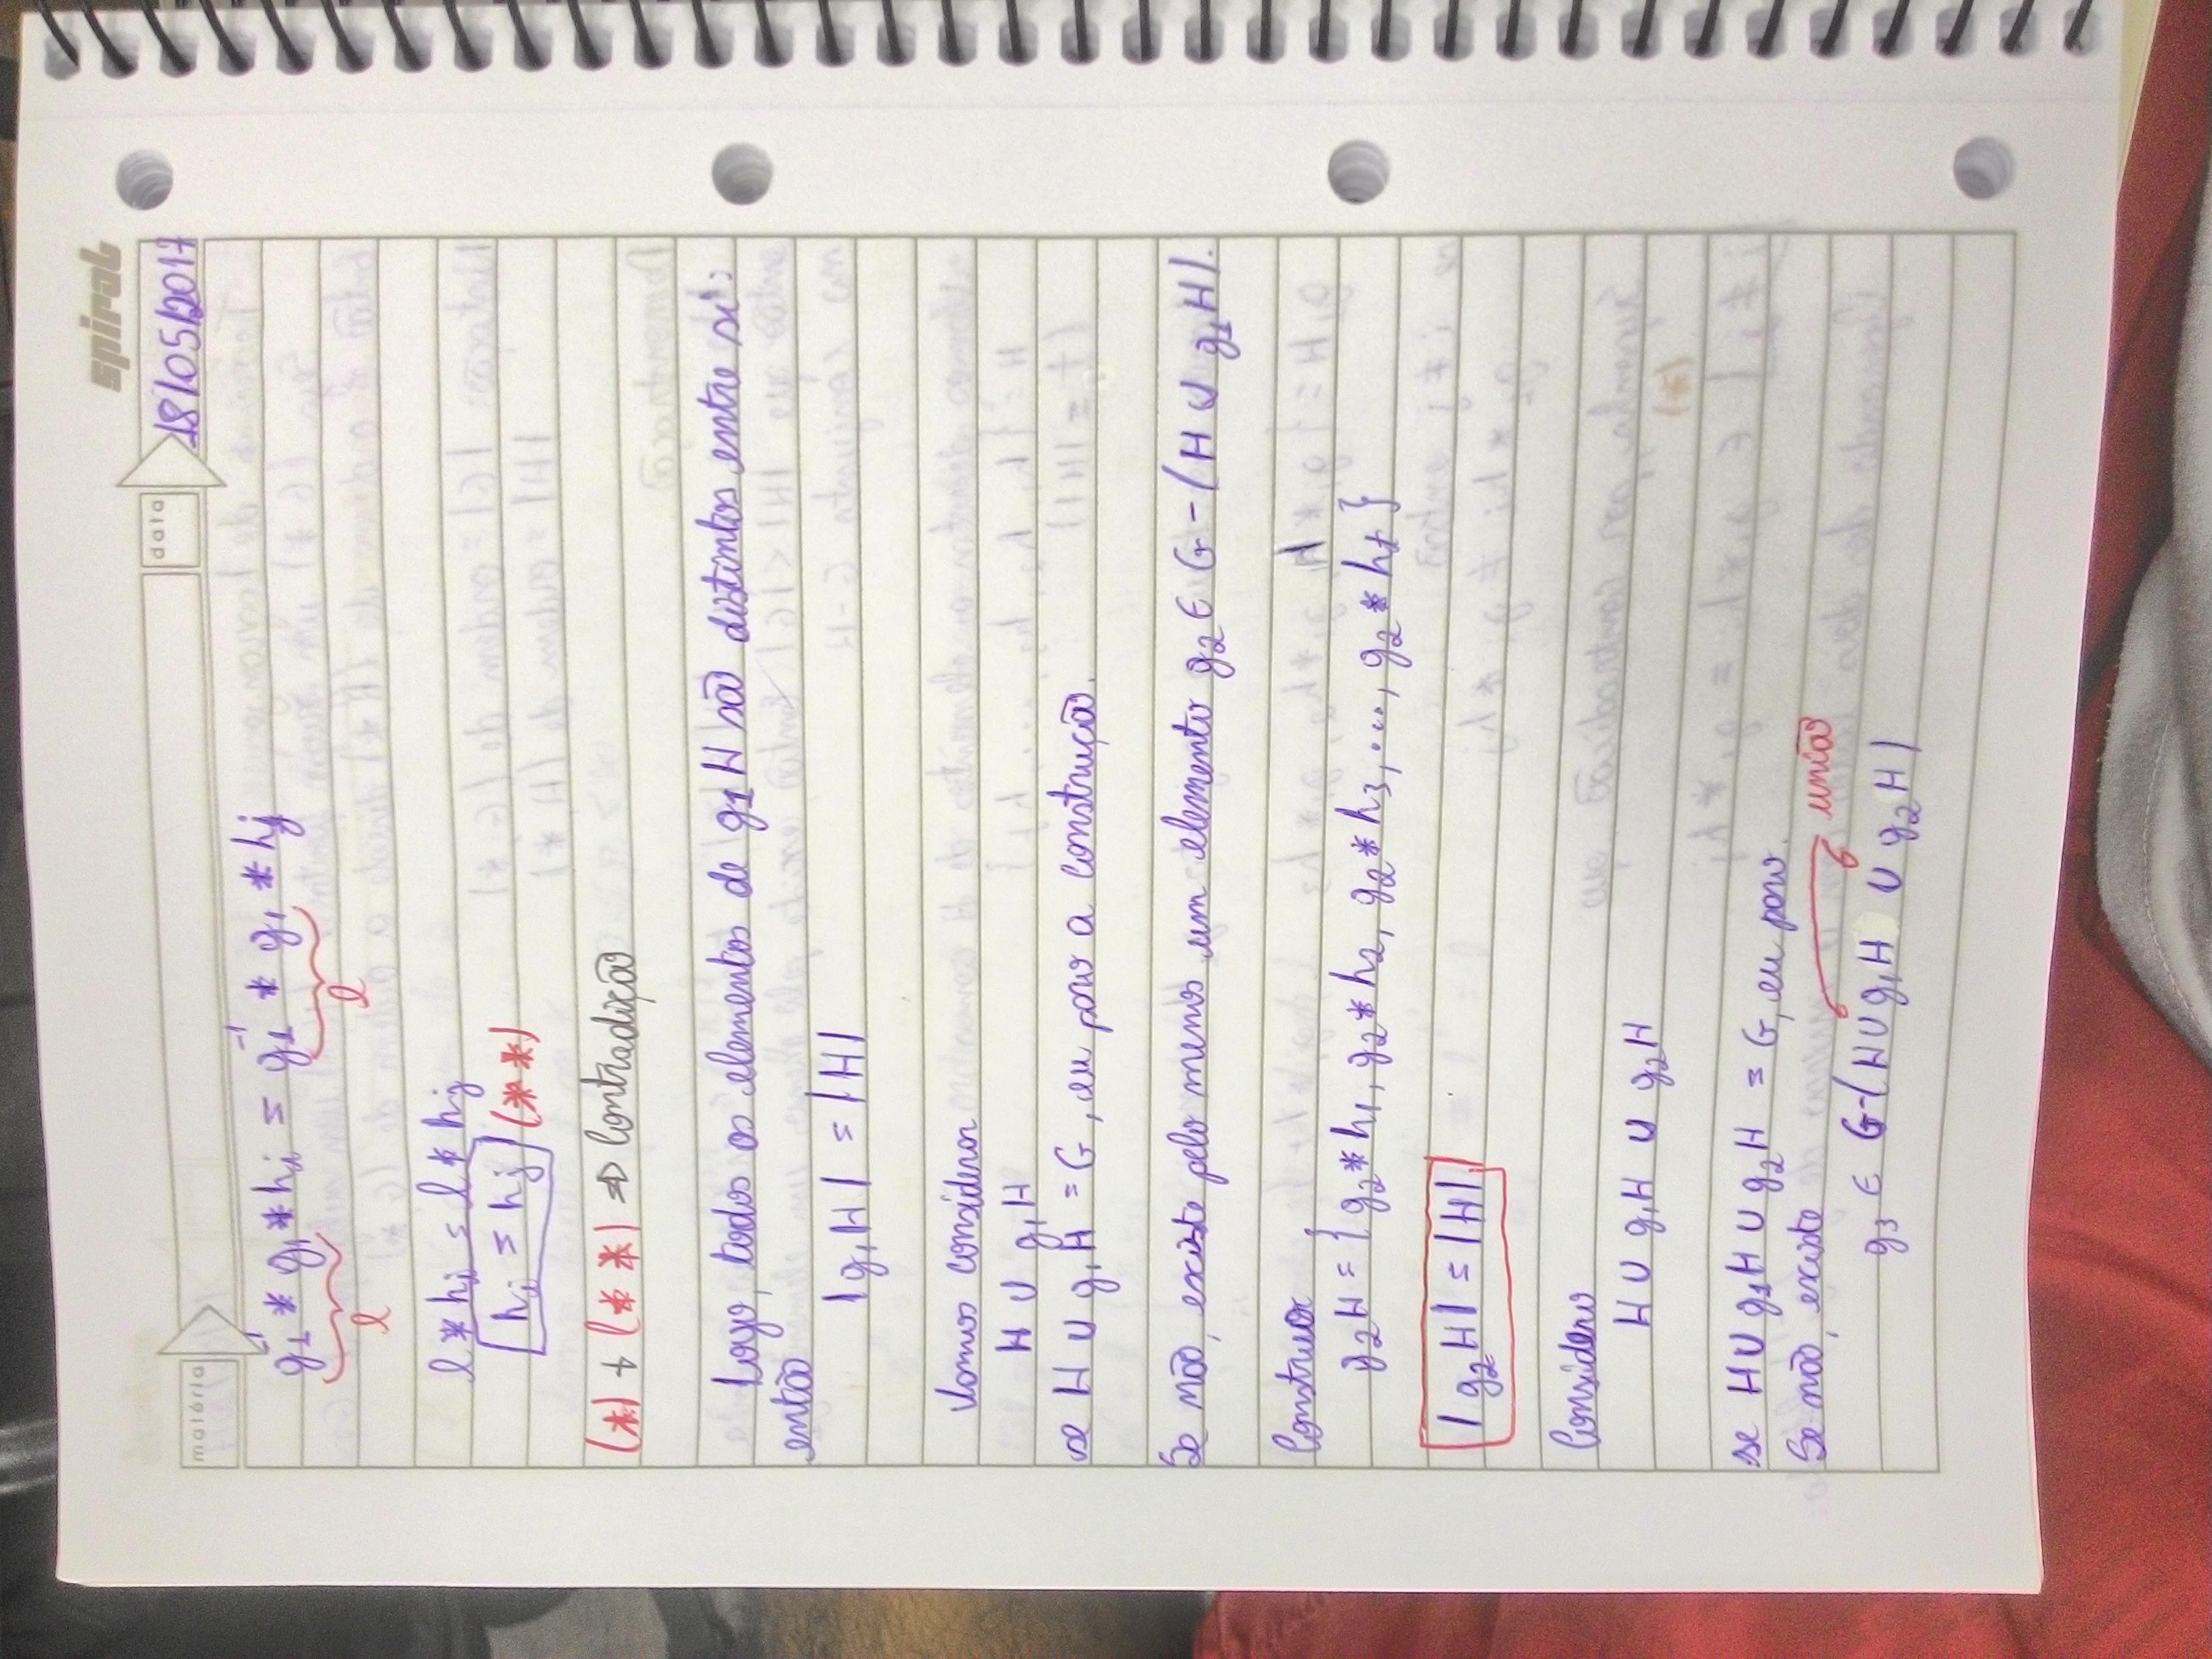 spiral
matéria
data
18/05/2017
g₁⁻¹ * g₁ * hᵢ = g₁⁻¹ * g₁ * hⱼ
e e
e * hᵢ = e * hⱼ
hᵢ = hⱼ (**)
(*) + (**) ⇒ Contradição
Logo, todos os elementos de g₁H são distintos entre si:
então
|g₁H| = |H|
Vamos considerar
H ∪ g₁H
se H ∪ g₁H = G, eu paro a construção.
Se não, existe pelo menos um elemento g₂ ∈ G - (H ∪ g₁H).
Construir
g₂H = {g₂*h₁, g₂*h₂, g₂*h₃, ..., g₂*hₜ}
|g₂H| = |H|
Considero
H ∪ g₁H ∪ g₂H
se H ∪ g₁H ∪ g₂H = G, eu paro.
Se não, existe
união
g₃ ∈ G-(H ∪ g₁H ∪ g₂H)